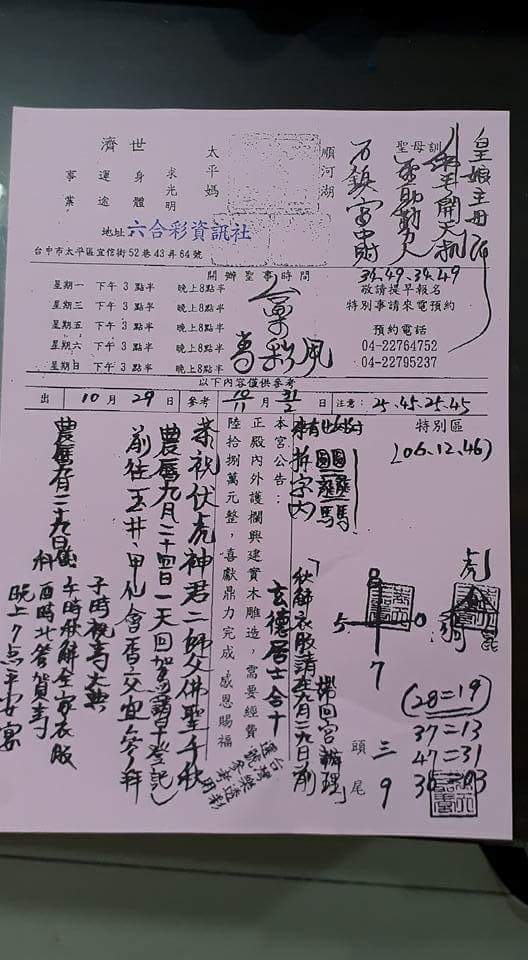 皇娘主母
聖母訓
萬鎮富中財
順河湖
太平媽
求光明
身體
運途
事業
濟世
地址 六合彩資訊社
台中市太平區宜信街52巷43弄64號
34.49.34.49
敬請提早報名
特別事請來電預約
預約電話
04-22764752
04-22795237
開辦聖事時間
星期一 下午3點半 晚上8點半
星期三 下午3點半 晚上8點半
星期五 下午3點半 晚上8點半
星期六 下午3點半 晚上8點半
星期日 下午3點半 晚上8點半
以下內容僅供參考
出 10月29日 參考 10/11 月 31/2 日 注意: 25.45.25.45
特別區
(06.12.46)
虎
8
5 0
7
(28=19)
37=13
47=31
頭 三
尾 9
拆字內
「秋解衣服請在九月二十九日前
攜回宮辦理」
本宮公告:
正殿內外護欄興建實木雕造,需要經費
陸拾捌萬元整,喜獻鼎力完成 感恩賜福
玄德居士合十
恭祝伏虎神君二師父佛聖千秋
農曆九月二十四日一天回駕
前往玉井、甲仙會香交宜參拜
農曆九月二十九日
子時祝壽大典
午時秋解全家衣服
酉時北管賀壽
晚上7点平安宴